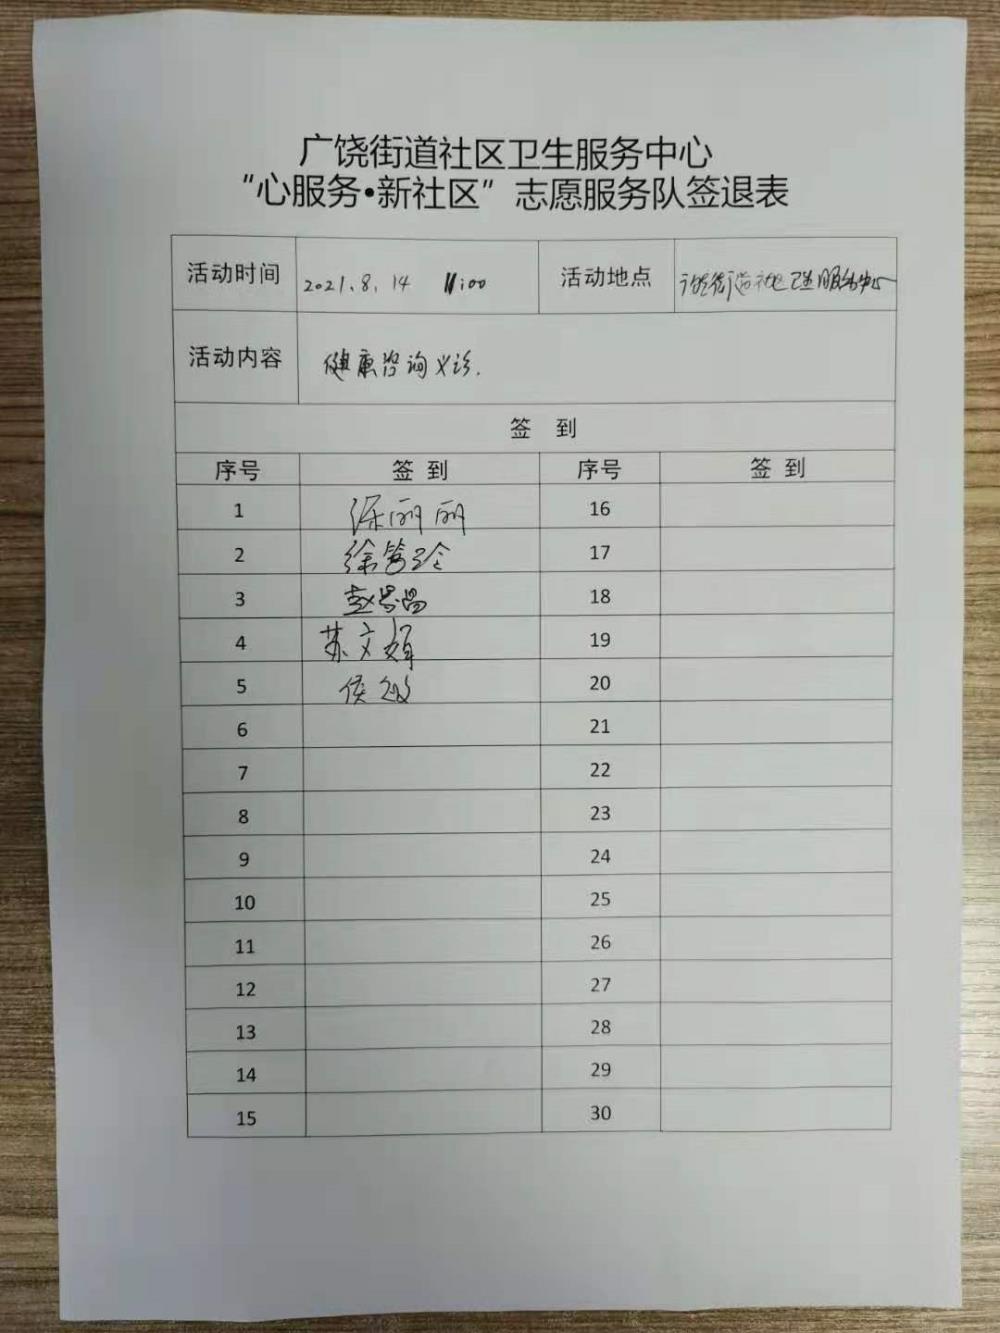 广饶街道社区卫生服务中心
“心服务•新社区”志愿服务队签退表
活动时间 2021.8.14 11:00 活动地点 广饶街道社区卫生服务中心
活动内容 健康咨询义诊.
签 到
序号 签到 序号 签到
1 丽丽 16
2 徐 17
3 赵 18
4 苏文 19
5 侯 20
6 21
7 22
8 23
9 24
10 25
11 26
12 27
13 28
14 29
15 30